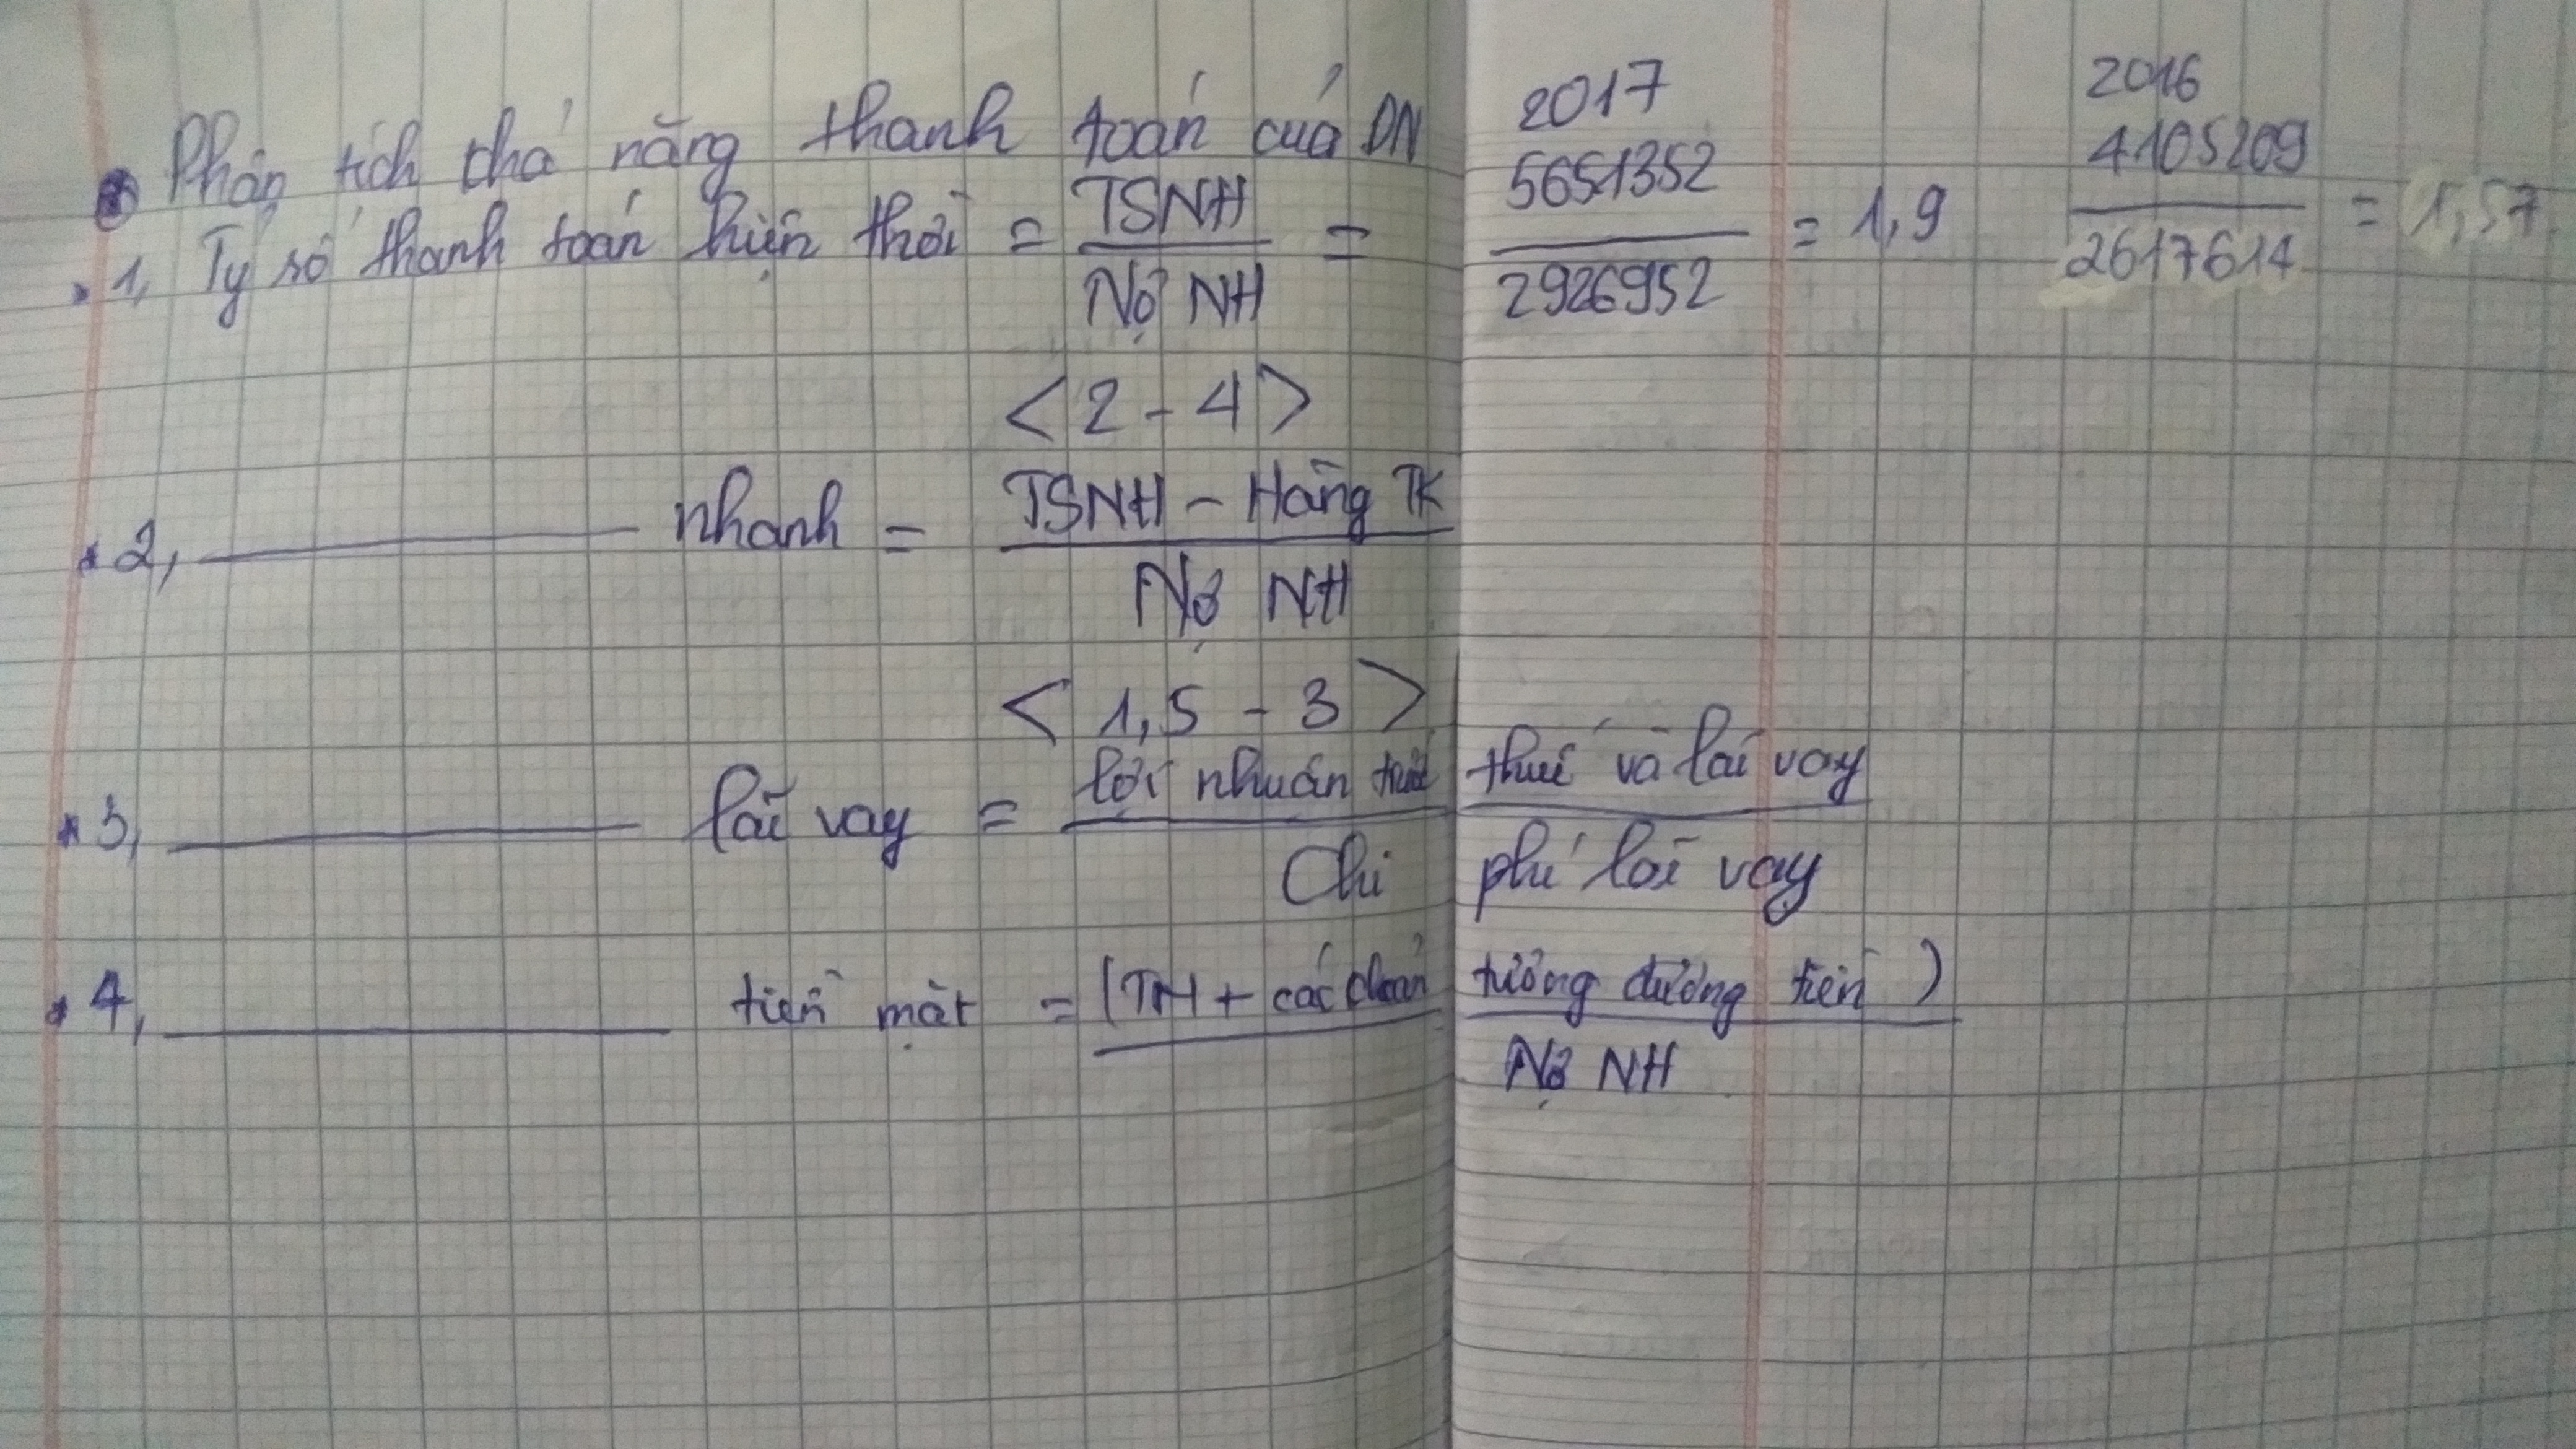 Phân tích khả năng thanh toán của DN
1, Tỷ số thanh toán hiện thời = TSNH / Nợ NH = 2017 5651352 / 2926952 = 1,9 2016 4105209 / 2617614 = 1,57
<2 - 4>
2, ——— nhanh = TSNH - Hàng TK / Nợ NH
<1,5 - 3>
3, ——— lãi vay = lợi nhuận trước thuế và lãi vay / Chi phí lãi vay
4, ——— tiền mặt = (TM + các khoản tương đương tiền) / Nợ NH